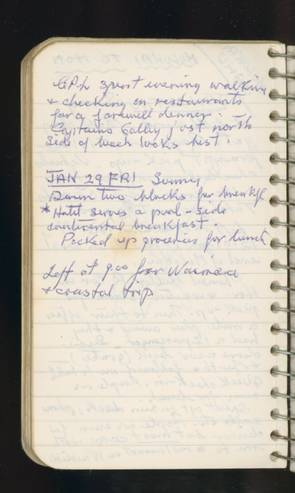 G.P.L spent evening walking
& checking on restaurants
for a farewell dinner.
Captains Galley just north
side of beach looks best.
JAN 29 FRI Sunny
Down two blocks for breakfst
* Hotel serves a pool-side
continental breakfast.
Picked up groceries for lunch
Left at 9:00 for Waimea
& coastal trip